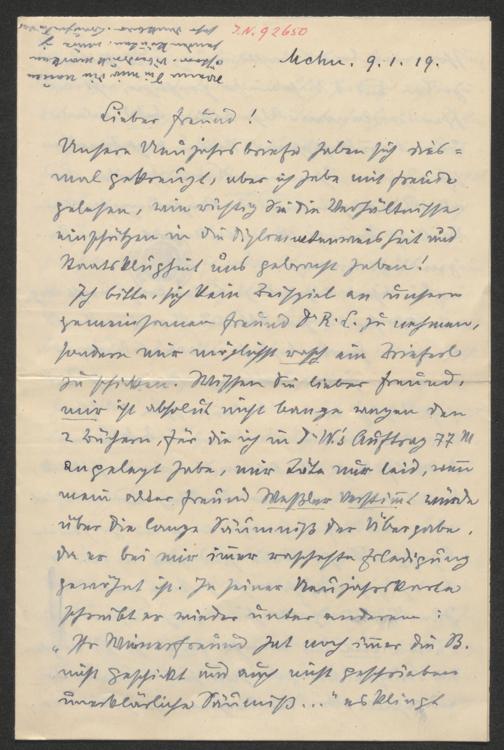 I.N. 92650
Mchn. 9. 1. 19.
Lieber Freund!
Unsere Neujahrsbriefe haben sich dies=
mal gekreuzt, aber ich habe mit Freude
gelesen, wie richtig Sie die Verhältnisse
einschätzen in die die und
Staatsklugheit uns gebracht haben!
Ich bitte, sich kein Beispiel an unserm
gemeinsamen Freund Dr R. L. zu nehmen,
sondern mir möglichst rasch ein Brieferl
zu schicken. Wissen Sie lieber Freund,
mir ist absolut nicht bange wegen den
2 Büchern, für die ich in Dr W's Auftrag 77 M
angelegt habe, mir täte nur leid, wenn
mein alter Freund verstimmt würde
über die lange Säumniß der Übergabe,
da er bei mir immer rascheste Erledigung
gewöhnt ist. In seiner Neujahrskarte
schreibt er wieder unter anderem:
"Ihr Wienerfreund hat noch immer die B.
nicht geschickt und auch nicht geschrieben
unerklärliche Säumniß..." es klingt